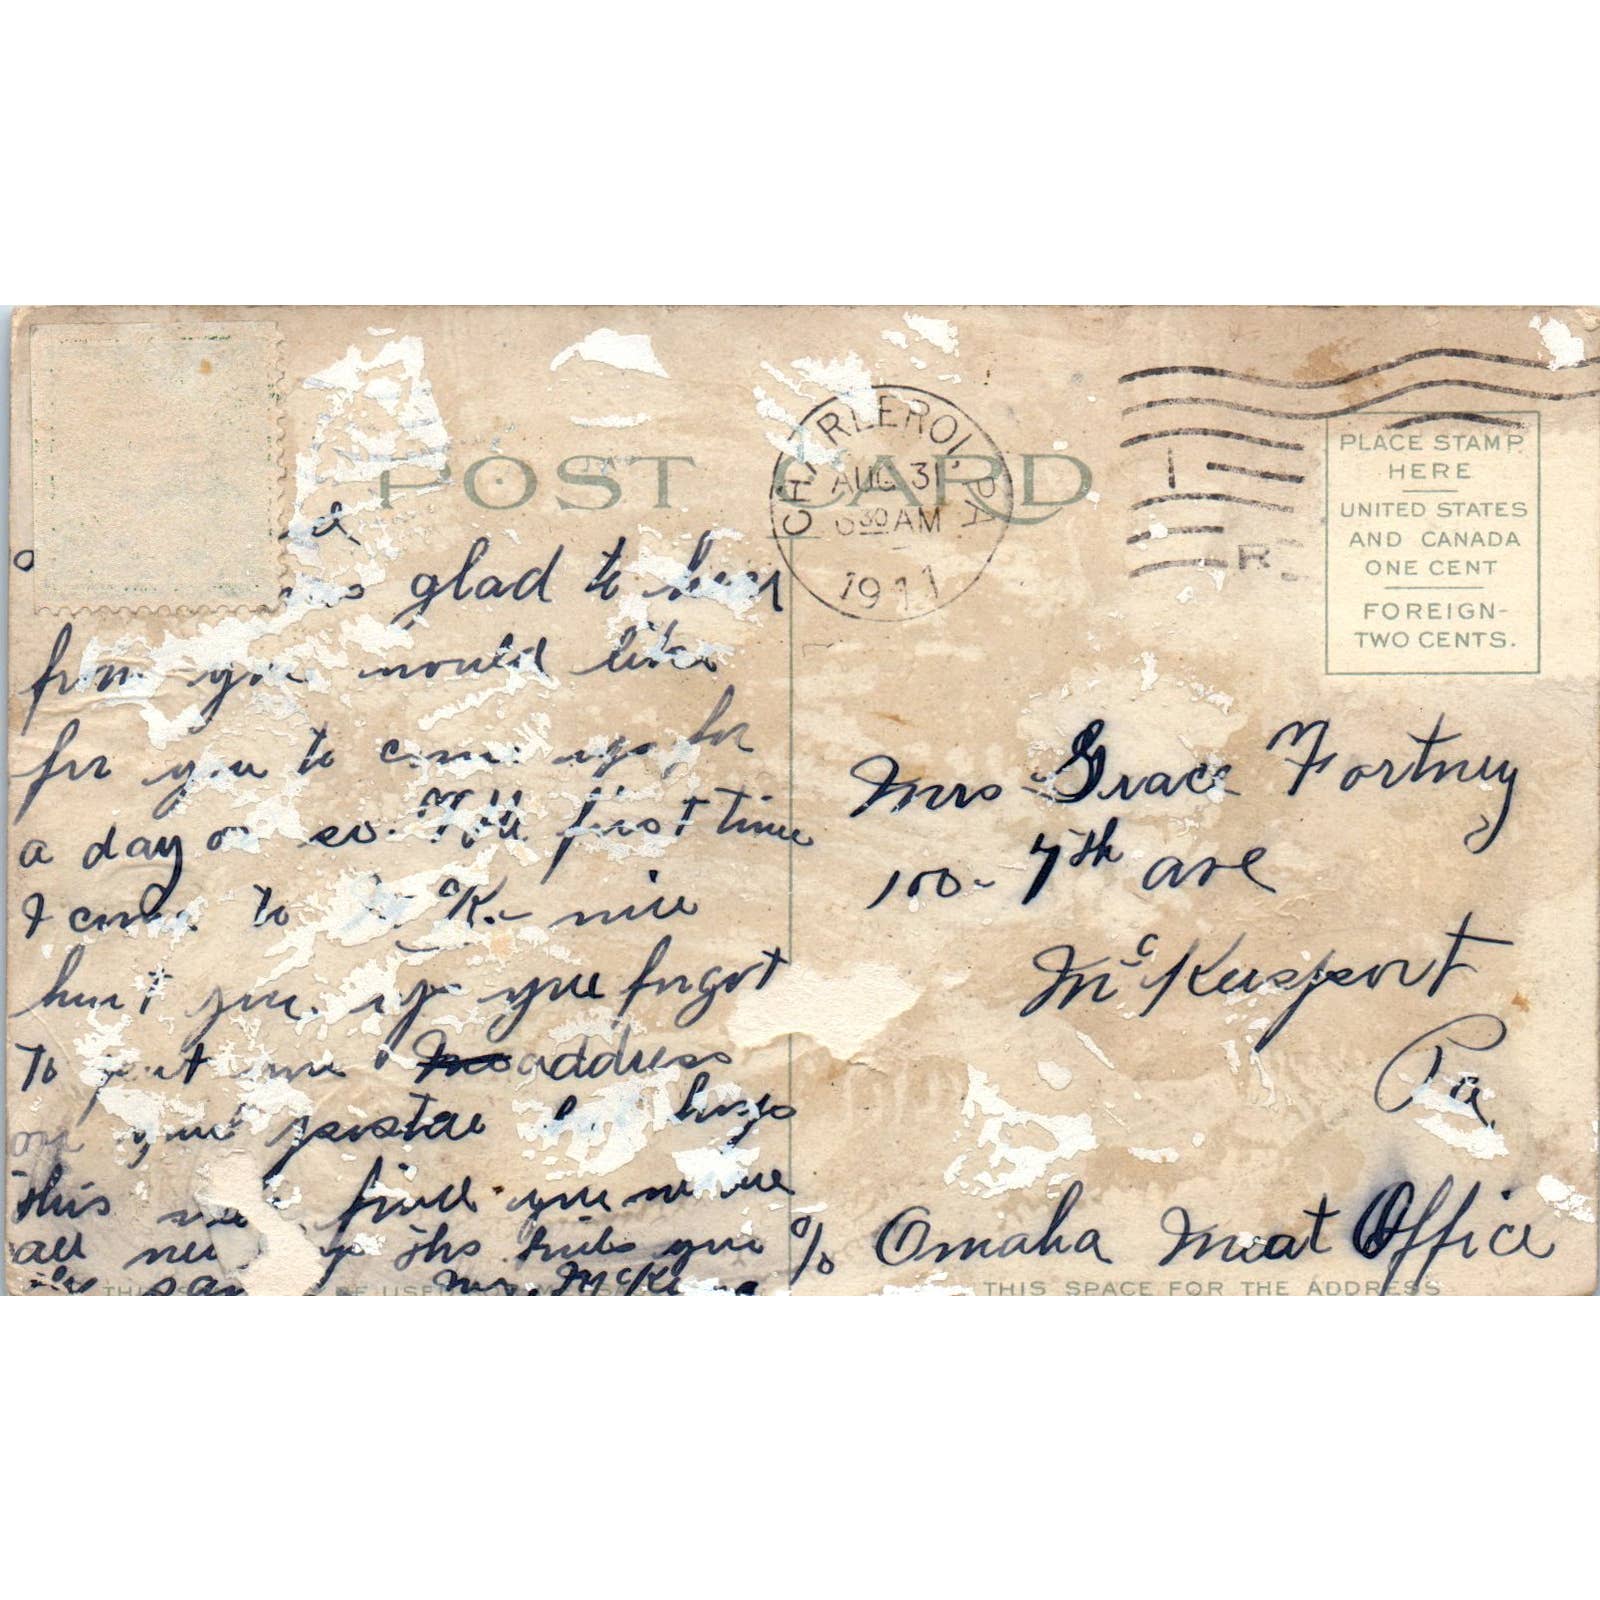 POST CARD
CHARLEROI, PA
AUG 31
30 AM
1911
PLACE STAMP
HERE
UNITED STATES
AND CANADA
ONE CENT
FOREIGN-
TWO CENTS.
glad to hear
from you would like
for you to come up for
a day or so. first time
I come to Mc K. will
hunt you up you forgot
to put your address
on your postal hope
this will find you
all the kids you
Mrs
Mrs Grace Fortney
100- 7th ave
McKeesport
Pa
c/o Omaha Meat Office
THIS SPACE FOR THE ADDRESS